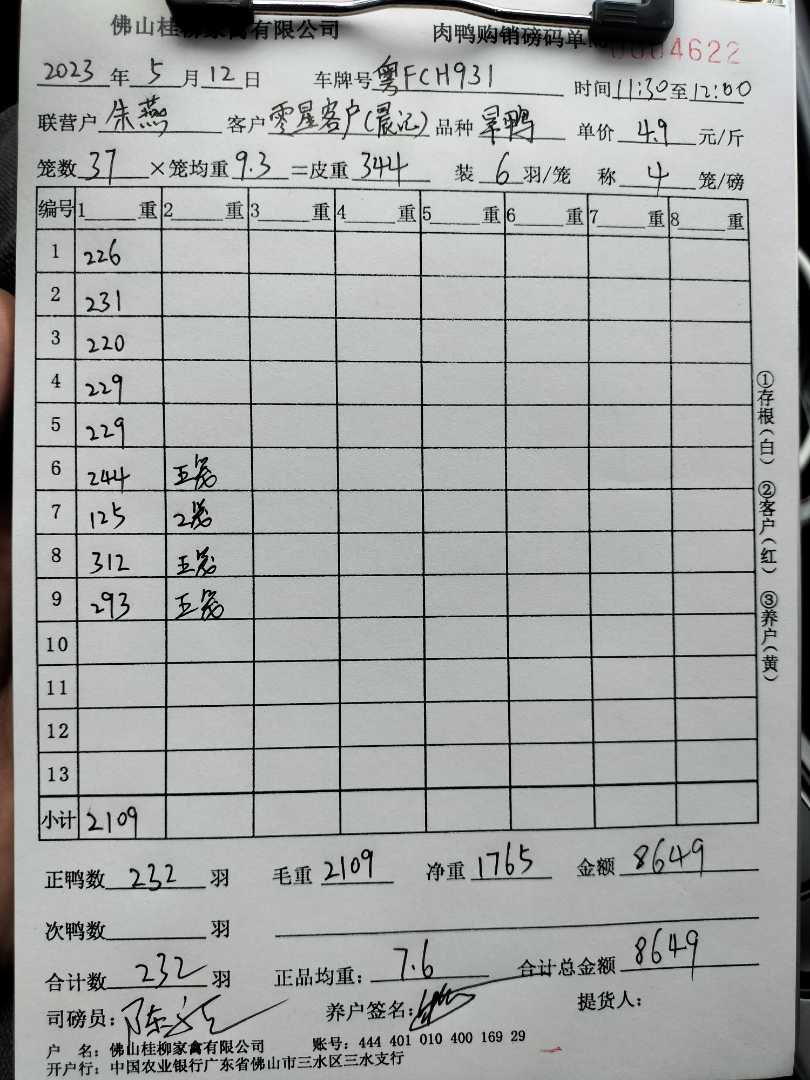 佛山桂柳家禽有限公司 肉鸭购销磅码单 0004622
2023年5月12日 车牌号粤FCH931 时间11:30至12:00
联营户朱燕 客户零星客户(晨记) 品种旱鸭 单价4.9元/斤
笼数37×笼均重9.3=皮重344 装6羽/笼 称4笼/磅
编号 1 重 2 重 3 重 4 重 5 重 6 重 7 重 8 重
1 226
2 231
3 220
4 229
5 229
6 244
7 125 2笼
8 312 五笼
9 293 五笼
10
11
12
13
小计 2109
正鸭数232羽 毛重2109 净重1765 金额8649
次鸭数 羽
合计数232羽 正品均重：7.6 合计总金额8649
司磅员：陈 养户签名： 提货人：
户 名：佛山桂柳家禽有限公司 账号：444 401 010 400 169 29
开户行：中国农业银行广东省佛山市三水区三水支行
①存根(白) ②客户(红) ③养户(黄)